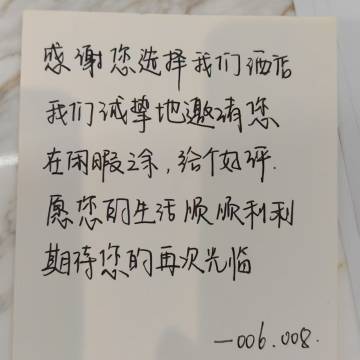 感谢您选择我们酒店
我们诚挚地邀请您
在闲暇之余，给个好评.
愿您的生活顺顺利利
期待您的再次光临
—006.008.